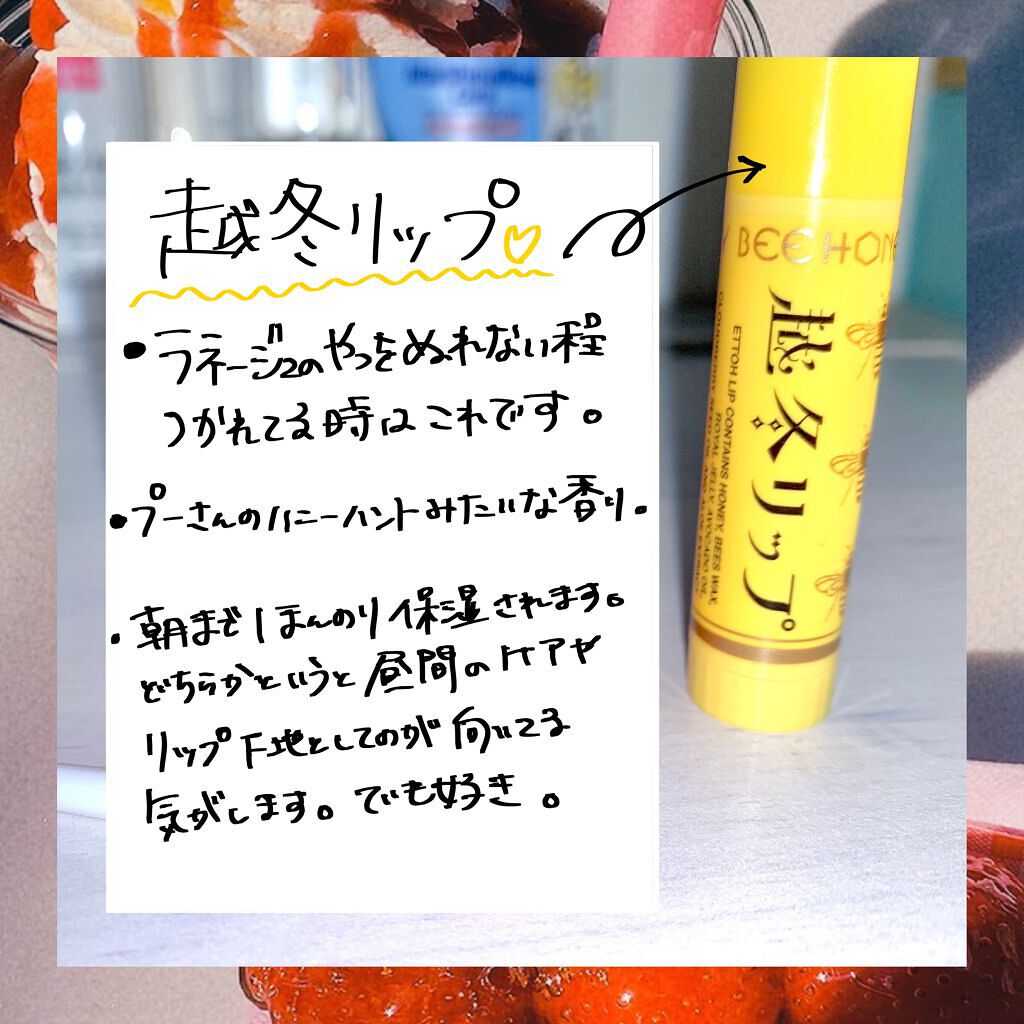 越冬リップ♡
・ラネージュのやつをぬれない程
つかれてる時はこれです。
・プーさんのハニーハントみたいな香り。
・朝までほんのり保湿されます。
どちらかというと昼間のケアや
リップ下地としてのが向いてる
気がします。でも好き。
BEE HONE
越冬リップ
ETTOH LIP CONTAINS HONEY, BEES WAX,
ROYAL JELLY, AVOCADO OIL,
CLOUDBERRY SEED OIL AND ALOE EXTRACT